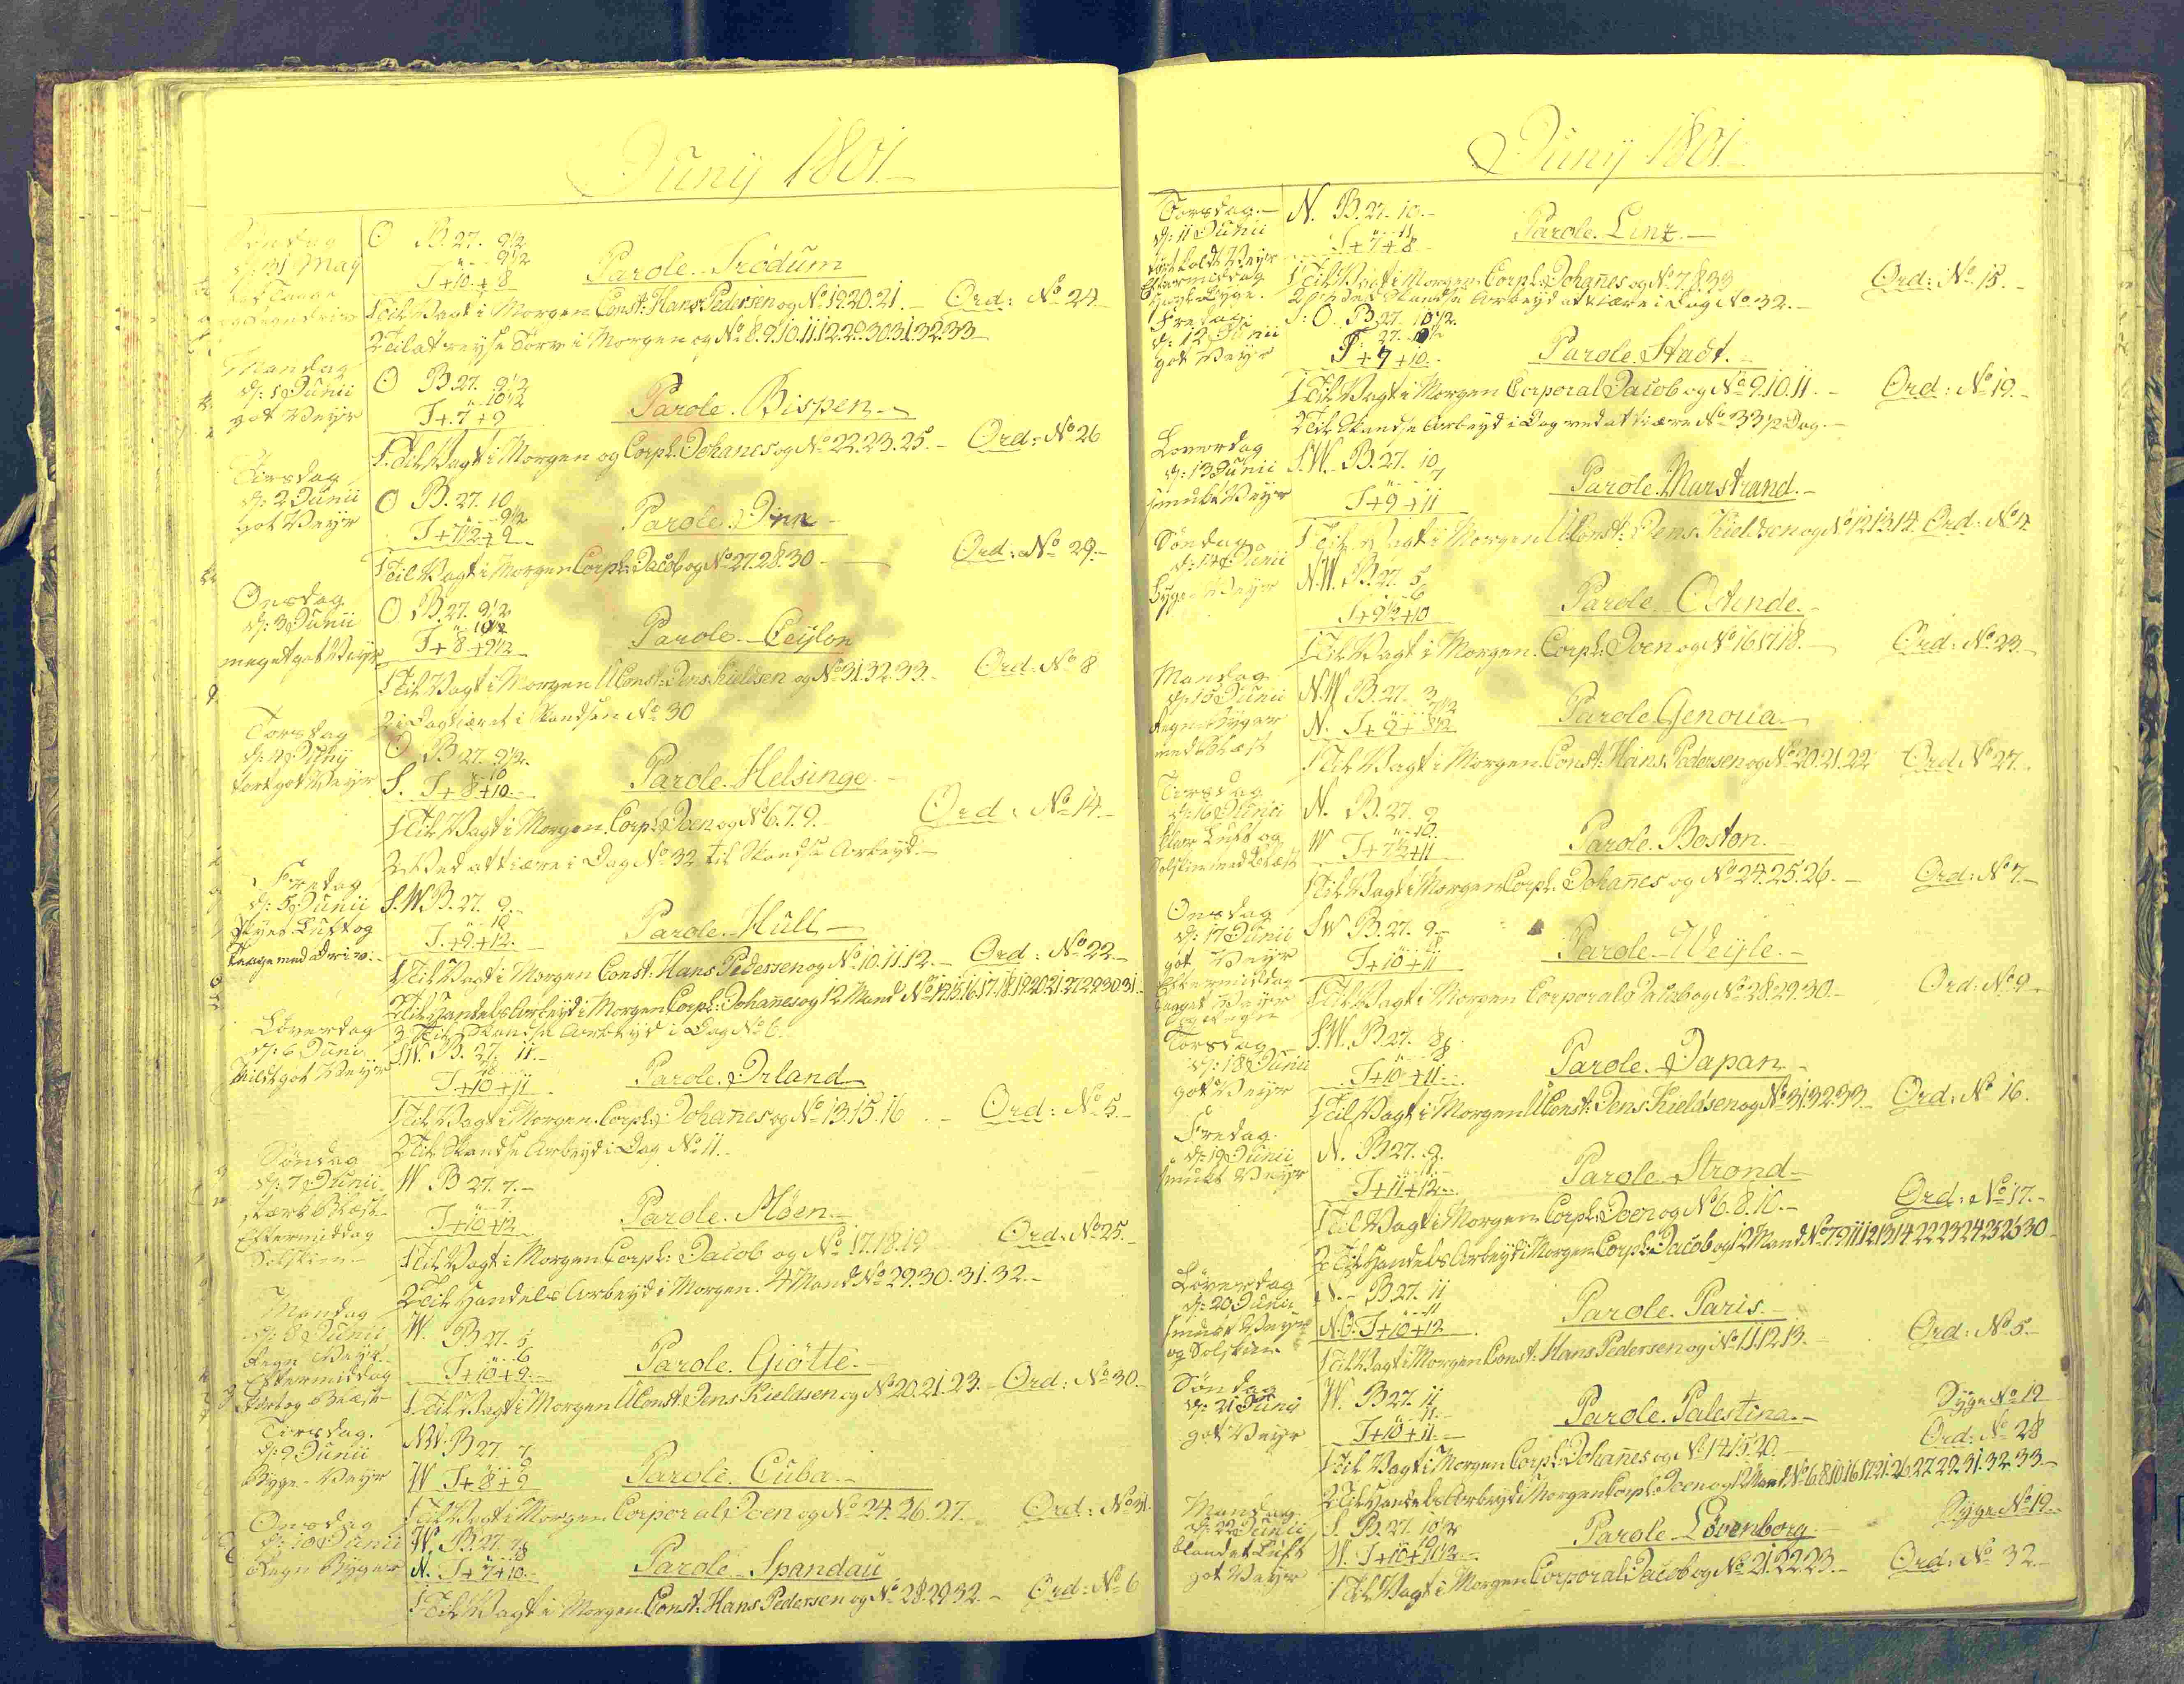 Juny 1801.
Söndag
d: 31 May
O B. 27. 9½
" - 9½
T + 10 + 8
Parole. Trödum
1 Til Vagt i Morgen Const: Hans Pedersen og No 19.20.21. - Ord: No 24
2 Til at reyse Törv i Morgen og No 8.9.10.11.12.22.30.31.32.33
Mandag
d: 1 Junii
got Veyr
O B. 27. 9½
" 10½
T + 7 + 9
Parole. Bispen.
1 Til Vagt i Morgen og Corpl. Johanes og No 22.23.25. - Ord: No 26
Tirsdag
d: 2 Junii
got Veyr
O B. 27. 10
" - 9½
T + 7½ + 9
Parole.
1 Til Vagt i Morgen Corpl: Jacob og No 27.28.30 - Ord: No 29.
Onsdag
d: 3 Junii
meget got Veyr
O B. 27. 9½
" 10½
T + 8 + 9½
Parole. Ceylon
1 Til Vagt i Morgen UConst: Jens Kieldsen og No 31.32.33. Ord: No 8
2 i Dag kiæret i Skandsen No 30
Torsdag
d: 4 Juny
tort got Veyr
O B. 27. 9½
" - 10
S. T + 8 + 10.
Parole. Helsinge.
1 Til Vagt i Morgen. Corpl: Joen og No 6.7.9. - Ord: No 14.
2 Ved at kiære i Dag No 32 til Skandse Arbeyd.
Fredag
d: 5 Junii
Skyet Luft og
Taage med Driv.
S.W. B. 27. 9.
" - 10
T. + 9. + 12.
Parole. Hull
1 Til Vagt i Morgen Const: Hans Pedersen og No 10.11.12. - Ord: No 22.
2 Til Handels Arbeyd i Morgen Corpl: Johanes og 12 Mand No 14.15.16.17.18.19.20.21.27.29.30.31.
3 Til Skandse Arbeyd i Dag No 6.
Löverdag
d: 6 Juni
stildt got Veyr
S.W. B. 27. 11.
T + 10 + 11
Parole. Irland
1 Til Vagt i Morgen. Corpl: Johanes og No 13.15.16 - Ord: No 5.
2 Til Skandse Arbeyd i Dag No 11.
Söndag
d: 7 Junii
stærk Blæst
Eftermiddag
Solskien
W B 27. 7.
" - 7.
T + 10 + 12
Parole. Möen.
1 Til Vagt i Morgen Corpl: Jacob og No 17.18.19 Ord: No 25.
2 Til Handels Arbeyd i Morgen. 4 Mand No 29.30.31.32.
Mandag
d: 8 Junii
Regn Veyr
Eftermiddag
tort og Blæst
W. B. 27. 5
" - 6
T + 10 + 9.
Parole. Giötte.
1 Til Vagt i Morgen UConst: Jens Kieldsen og No 20.21.23. - Ord: No 30.
Tirsdag.
d: 9 Junii
Byge - Veyr
NW. B 27. 7
W T + 8 + 9
Parole. Cuba.
1 Til Vagt i Morgen Corporal Joen og No 24.26.27. Ord: No 31.
Onsdag
d: 10 Junii
Regn Byger
W. B. 27. 7
N. T + 7 + 10.
Parole. Spandau
1 Til Vagt i Morgen Const: Hans Pedersen og No 28.29.32. - Ord: No 6
Juny 1801.
Torsdag.
d: 11 Junii
Eftermiddag
N. B. 27. 10.
" - 11
T + 7 + 8
Parole. Linz.
1 Til Vagt i Morgen Corpl: Johanes og No 7.8.33 Ord: No 15.
2 Skandse Arbeyd at kiære i Dag No 32.
Fredag.
d: 12 Junii
got Veyr
S:O. B. 27. 10½.
T + 7 + 10.
Parole. Stadt.
1 Til Vagt i Morgen Corporal Jacob og No 9.10.11. - Ord: No 19.
2 Til Skandse Arbeyd i Dag ved at kiære No 33 ½ Dag.
Loverdag
d: 13 Junii
smukt Veyr
S.W. B. 27. 10
" - 7
T + 9 + 11
Parole. Marstrand.
1 Til Vagt i Morgen UConst: Jens Kieldsen og No 12.13.14. Ord: No 4
Söndag
d: 14 Junii
Byge Veyr
N.W. B. 27. 5
" - 6
T + 9½ + 10
Parole. Ostende.
1 Til Vagt i Morgen. Corpl: Joen og No 16.17.18. Ord: No 23.
Mandag
d: 15 Junii
Regn Byger
med Blæst
N.W B. 27. 3
" - 7½
N. T + 9 + 8½
Parole Genoua.
1 Til Vagt i Morgen. Const: Hans Pedersen og No 20.21.22 Ord No 27.
Tirsdag
d: 16 Junii
klar Luft og
Solskin med Blæst
N. B. 27. 9
" - 10.
W T + 7½ + 11
Parole. Boston.
1 Til Vagt i Morgen Corpl: Johanes og No 24.25.26. - Ord: No 7.
Onsdag
d: 17 Junii
got Veyr
Eftermiddag
SW B. 27. 9.
T + 10 + 11
Parole. Weyle.
1 Til Vagt i Morgen Corporal Jacob og No 28.29.30. - Ord: No 9
Torsdag
d: 18 Junii
got Veyr
S.W. B. 27. 8
" - 8
T + 10 + 11.
Parole. Japan
1 Til Vagt i Morgen UConst: Jens Kieldsen og No 31.32.33 Ord: No 16.
Fredag.
d: 19 Junii
smukt Veyr
N. B 27. 9.
" - 11.
T + 11 + 12.
Parole Strond
1 Til Vagt i Morgen Corpl: Joen og No 6.8.10. - Ord: No 17.
2 Til Handels Arbeyd i Morgen Corpl: Jacob og 12 Mand No 7.9.11.12.13.14.22.23.24.25.26.30
Löverdag
d: 20 Junii
smukt Veyr
og Solskien
N. B 27. 11
" - 11
N.O. T + 10 + 12
Parole. Paris.
1 Til Vagt i Morgen Const: Hans Pedersen og No 11.12.13. Ord: No 5.
Söndag
d: 21 Juny
got Veyr
W. B 27. 11
" - 11.
T + 10 + 11.
Parole. Palestina. Syge No 19
1 Til Vagt i Morgen Corpl: Johanes og No 14.15.20. Ord: No 28
2 Til Handels Arbeyd i Morgen Corpl: Joen og 12 Mand No 6.8.10.16.17.21.26.27.29.31.32.33.
Mandag
d: 22 Junii
blandet Luft
got Veyr
S. B. 27. 10½
" - 10
W. T + 10 + 11½
Parole Lövenborg Syge No 19
1 Til Vagt i Morgen Corporal Jacob og No 21.22.23. - Ord: No 32.